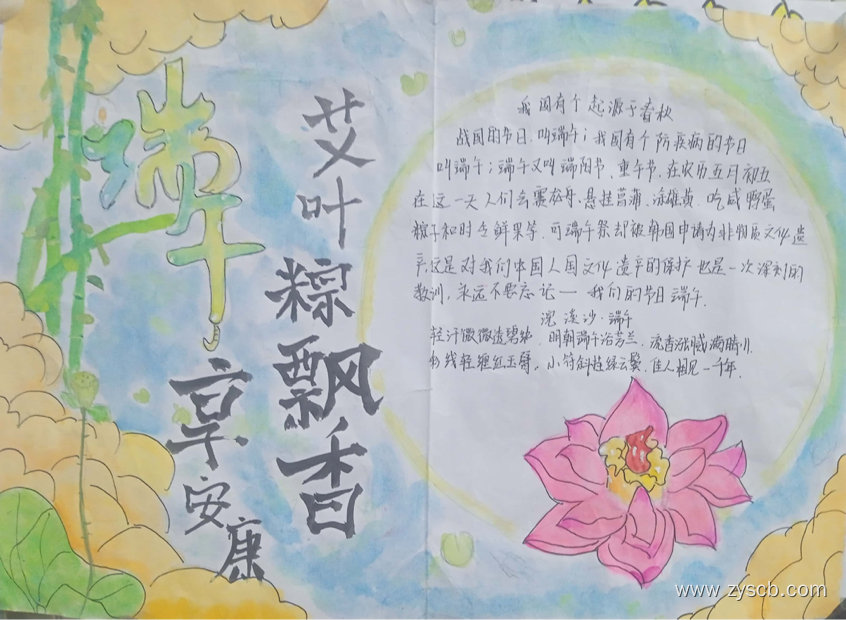 端午
享安康
艾叶粽飘香
我国有个起源于春秋
战国的节日,叫端午;我国有个防疾病的节日
叫端午;端午又叫端阳节、重午节,在农历五月初五
在这一天人们会赛龙舟,悬挂菖蒲、洒雄黄、吃咸鸭蛋
粽子和时令鲜果等,可端午祭却被韩国申请为非物质文化遗
产,这是对我们中国人国文化遗产的保护也是一次深刻的
教训,永远不要忘记一 我们的节日端午.
浣溪沙·端午
轻汗微微透碧纨,明朝端午浴芳兰.流香涨腻满晴川.
彩线轻缠红玉臂,小符斜挂绿云鬟.佳人相见一千年.
www.zyscb.com